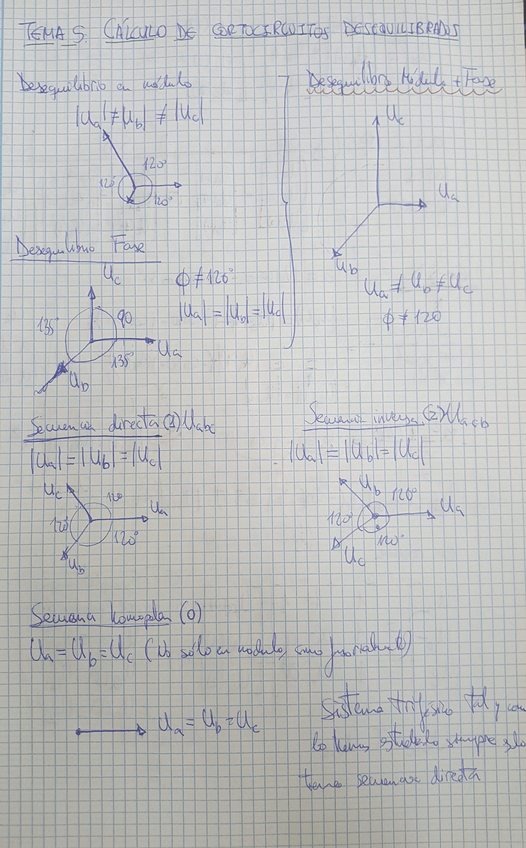 TEMA 5 CÁLCULO DE CORTOCIRCUITOS DESEQUILIBRADOS
Desequilibrio en módulo
|Ua| ≠ |Ub| ≠ |Uc|
120°
120°
120°
Desequilibrio Módulo + Fase
Uc
Ua
Ub
Ua ≠ Ub ≠ Uc
ϕ ≠ 120
Desequilibrio Fase
Uc
ϕ ≠ 120°
|Ua| = |Ub| = |Uc|
135°
90
135°
Ua
Ub
Secuencia directa (1) Uabc
|Ua| = |Ub| = |Uc|
Uc
120°
Ua
120°
120°
Ub
Secuencia inversa (2) Uacb
|Ua| = |Ub| = |Uc|
Ub
120°
Ua
120°
120°
Uc
Secuencia homopolar (0)
Ua = Ub = Uc (No sólo en módulo, sino
Ua = Ub = Uc
Sistema trifásico tal y como
lo hemos estudiado siempre sólo
tiene secuencia directa